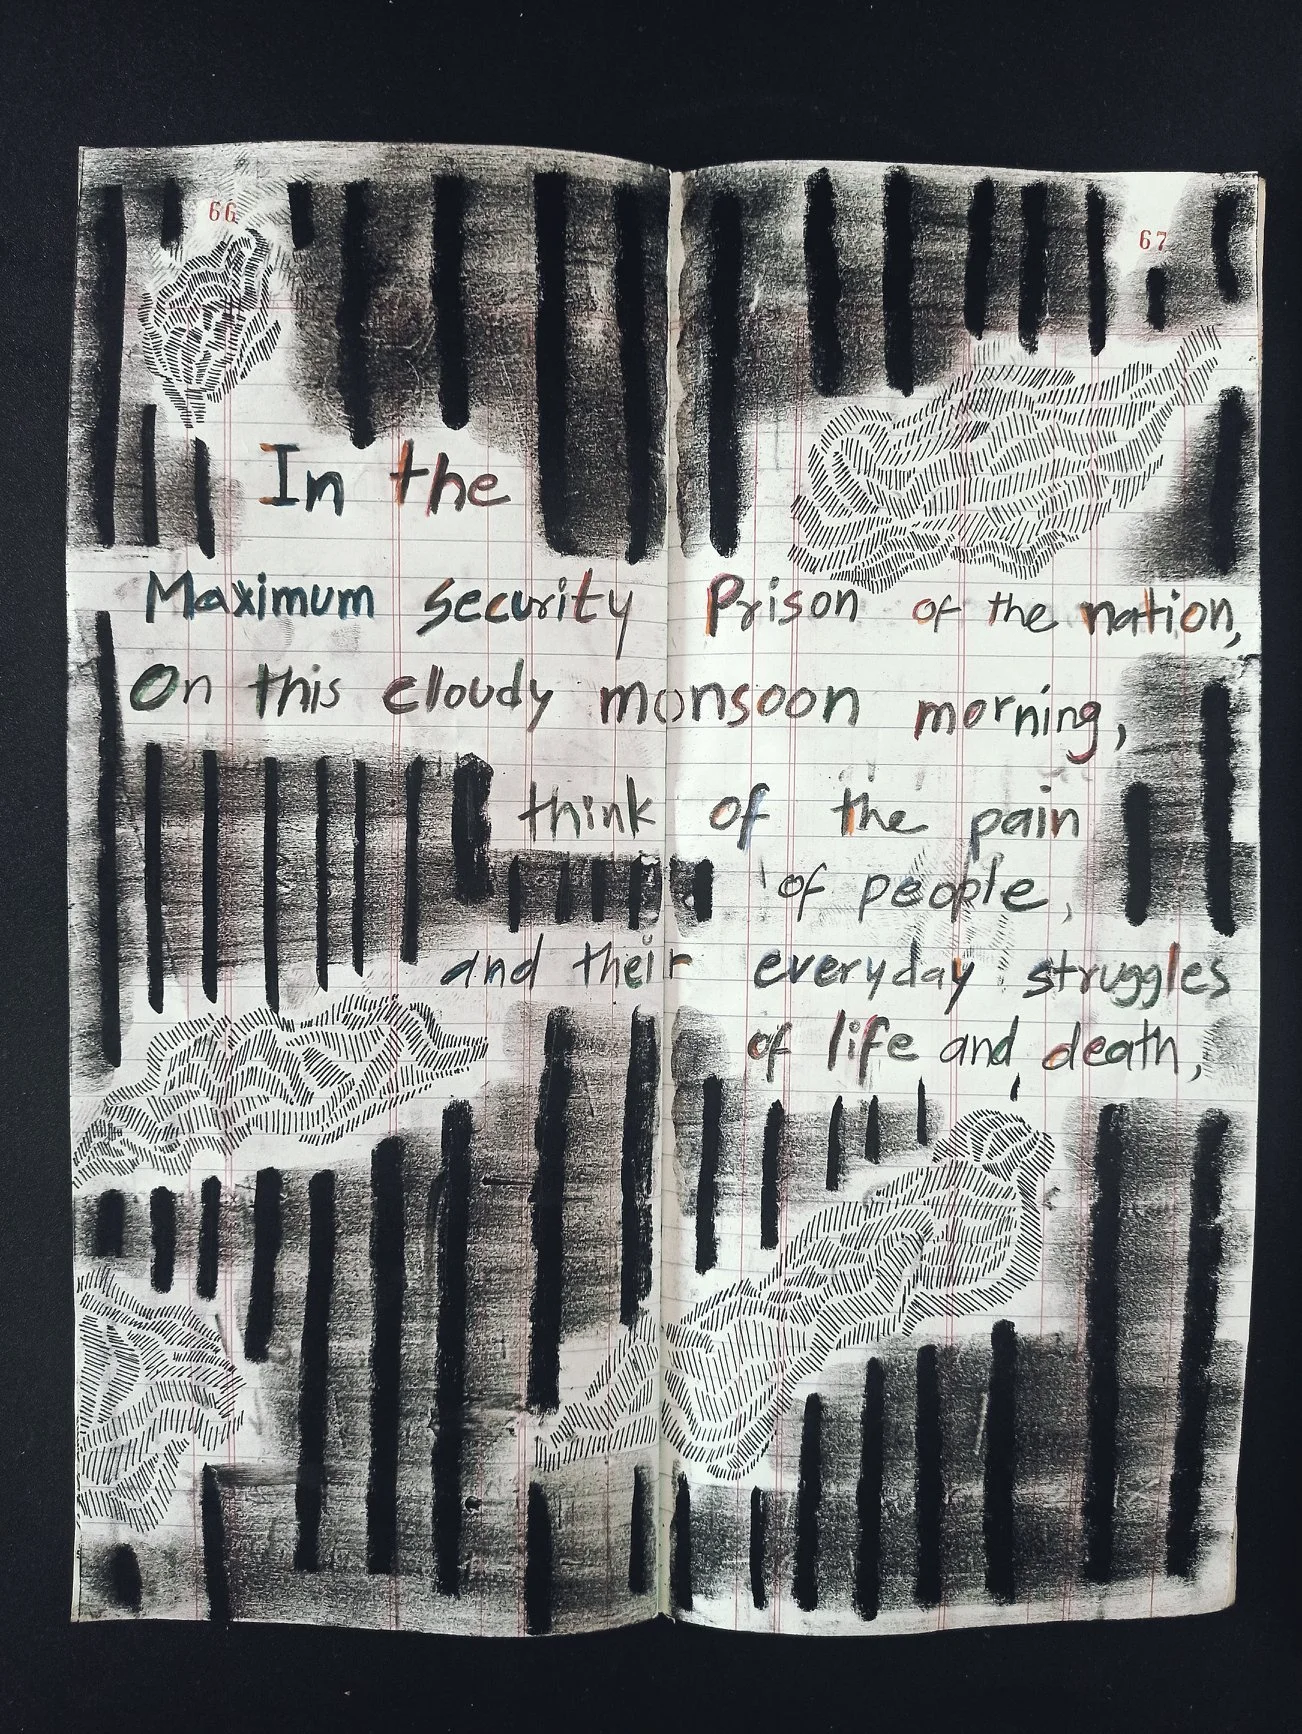 66
67
In the
Maximum security Prison of the nation,
On this cloudy monsoon morning,
think of the pain
of people,
and their everyday struggles
of life and death,